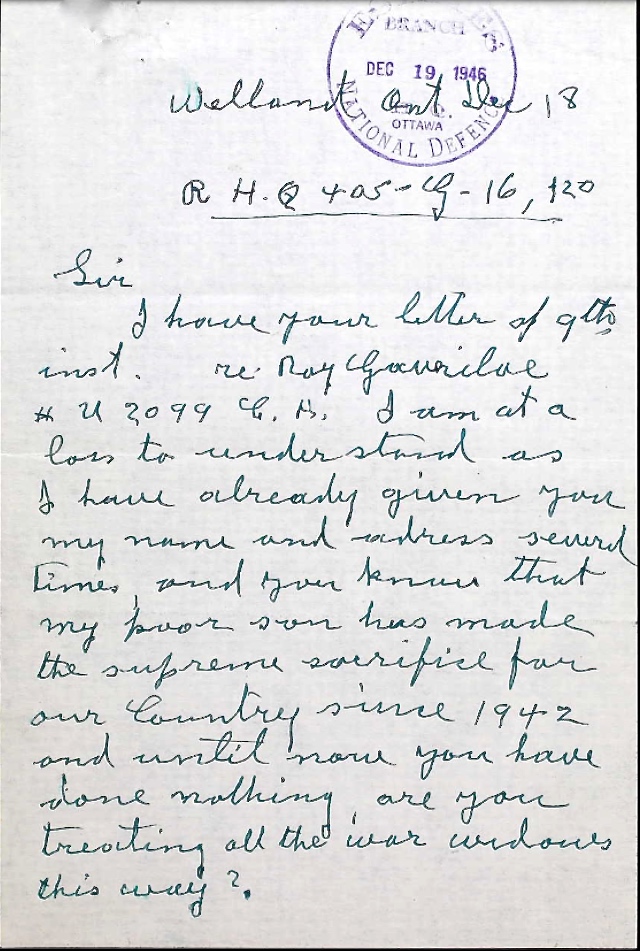 BRANCH
DEC 19 1946
OTTAWA
NATIONAL DEFENCE
Welland Ont Dec 18
R H.Q 405-G-16,120
Sir
I have your letter of 9th
inst. re: Roy Gavriloe
# U 2099 I am at a
loss to understand as
I have already given you
my name and adress several
times, and you know that
my poor son has made
the supreme sacrifice for
our Country since 1942
and until now you have
done nothing, are you
treating all the war widows
this way?.